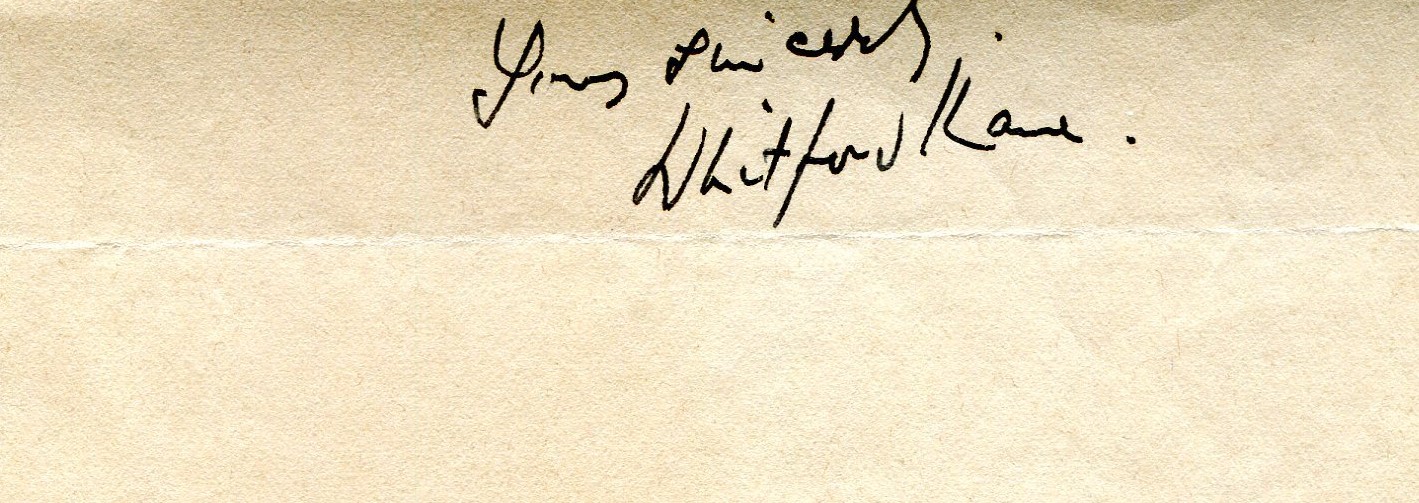 Yours sincerely.
Whitford Kane.